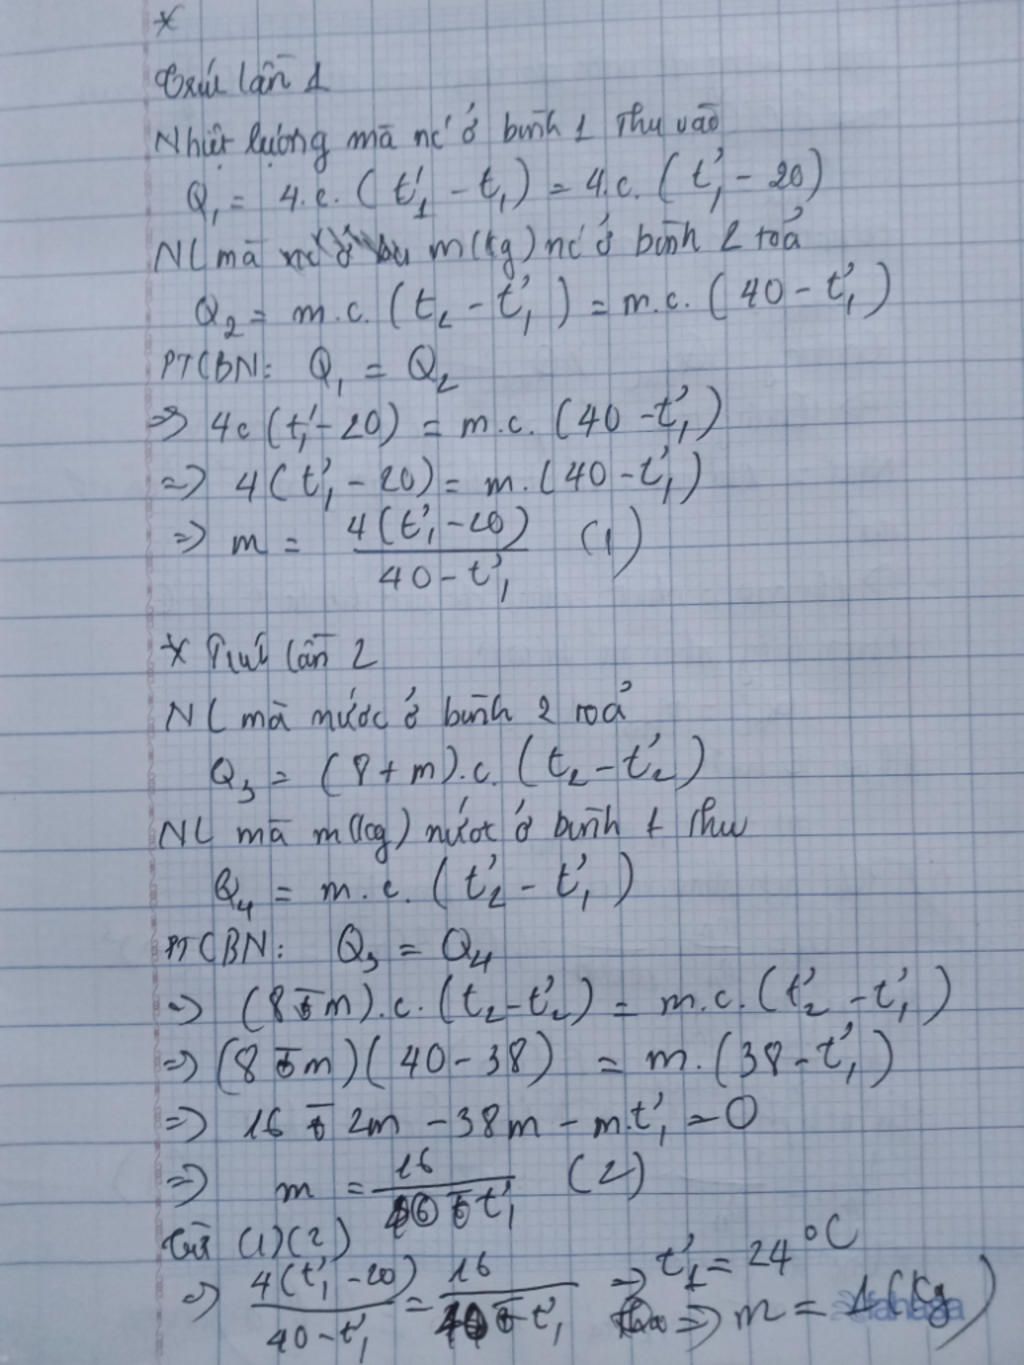 *
Trút lần 1
Nhiệt lượng mà nc' ở bình 1 thu vào
Q₁ = 4.c.(t'₁ - t₁) = 4.c.(t'₁ - 20)
NL mà m(kg) nc' ở bình 2 toả
Q₂ = m.c.(t₂ - t'₁) = m.c.(40 - t'₁)
PTCBN: Q₁ = Q₂
=> 4c(t'₁ - 20) = m.c.(40 - t'₁)
=> 4(t'₁ - 20) = m.(40 - t'₁)
=> m = 4(t'₁ - 20) / 40 - t'₁ (1)
* Trút lần 2
NL mà nước ở bình 2 toả
Q₃ = (8 + m).c.(t₂ - t'₂)
NL mà m(kg) nước ở bình 1 thu
Q₄ = m.c.(t'₂ - t'₁)
PTCBN: Q₃ = Q₄
=> (8 - m).c.(t₂ - t'₂) = m.c.(t'₂ - t'₁)
=> (8 - m)(40 - 38) = m.(38 - t'₁)
=> 16 - 2m - 38m - m.t'₁ = 0
=> m = 16 / 40 - t'₁ (2)
Từ (1)(2)
=> 4(t'₁ - 20) / 40 - t'₁ = 16 / 40 - t'₁ => t'₁ = 24 °C
=> m = 1 (kg)